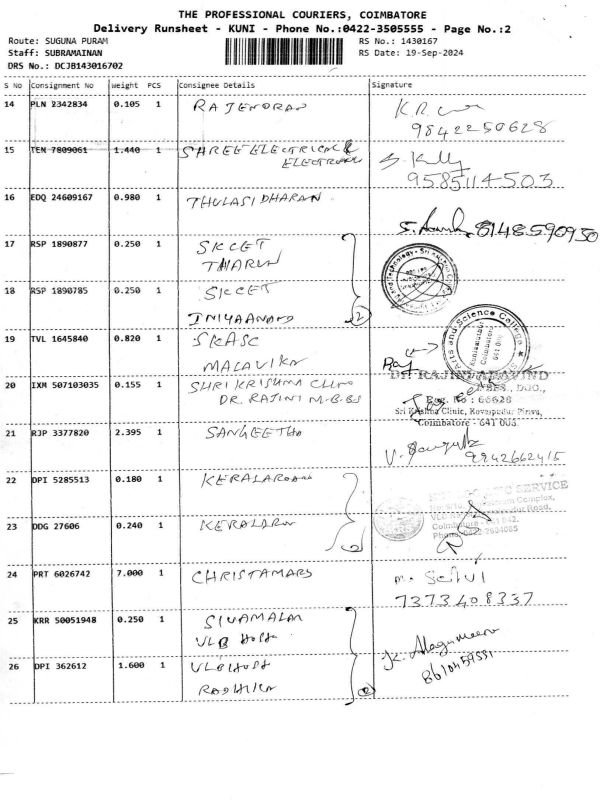 THE PROFESSIONAL COURIERS, COIMBATORE
Delivery Runsheet - KUNI - Phone No.:0422-3505555 - Page No.:2
Route: SUGUNA PURAM RS No.: 1430167
Staff: SUBRAMAINAN RS Date: 19-Sep-2024
DRS No.: DCJB143016702
S No Consignment No Weight PCS Consignee Details Signature
14 PLN 2342834 0.105 1 RAJENDRAN
9842250628
15 TEN 7809061 1.440 1 SHREE ELECTRICAL &
ELECTRONIC
9585114503
16 EDQ 24609167 0.980 1 THULASIDHARAN
8148590950
17 RSP 1890877 0.250 1 SKCET
THARUN
18 RSP 1890785 0.250 1 SKCET
INIYAANAND
2
19 TVL 1645840 0.820 1 SKASC
MALAVIKA
Arts and Science College
Kuniamuthur
Coimbatore
641 008
20 IXM 507103035 0.155 1 SHRI KRISHNA CLINIC
DR. RAJINI M.B.BS
Reg. No : 66628
Sri Krishna Clinic, Kovaipudur Pirivu,
Coimbatore - 641 008
21 RJP 3377820 2.395 1 SANGEETHA
9942662415
22 DPI 5285513 0.180 1 KERALA
SERVICE
Complex,
Road,
23 DDG 27606 0.240 1 KERALA
2
Coimbatore - 641 042.
24 PRT 6026742 7.000 1 CHRISTAMARY
M. Selvi
7373408337
25 KRR 50051948 0.250 1 SIVAMALAR
VLB
26 DPI 362612 1.600 1 VLB
RADHIKA
2
K. Alagumeena
8610459551